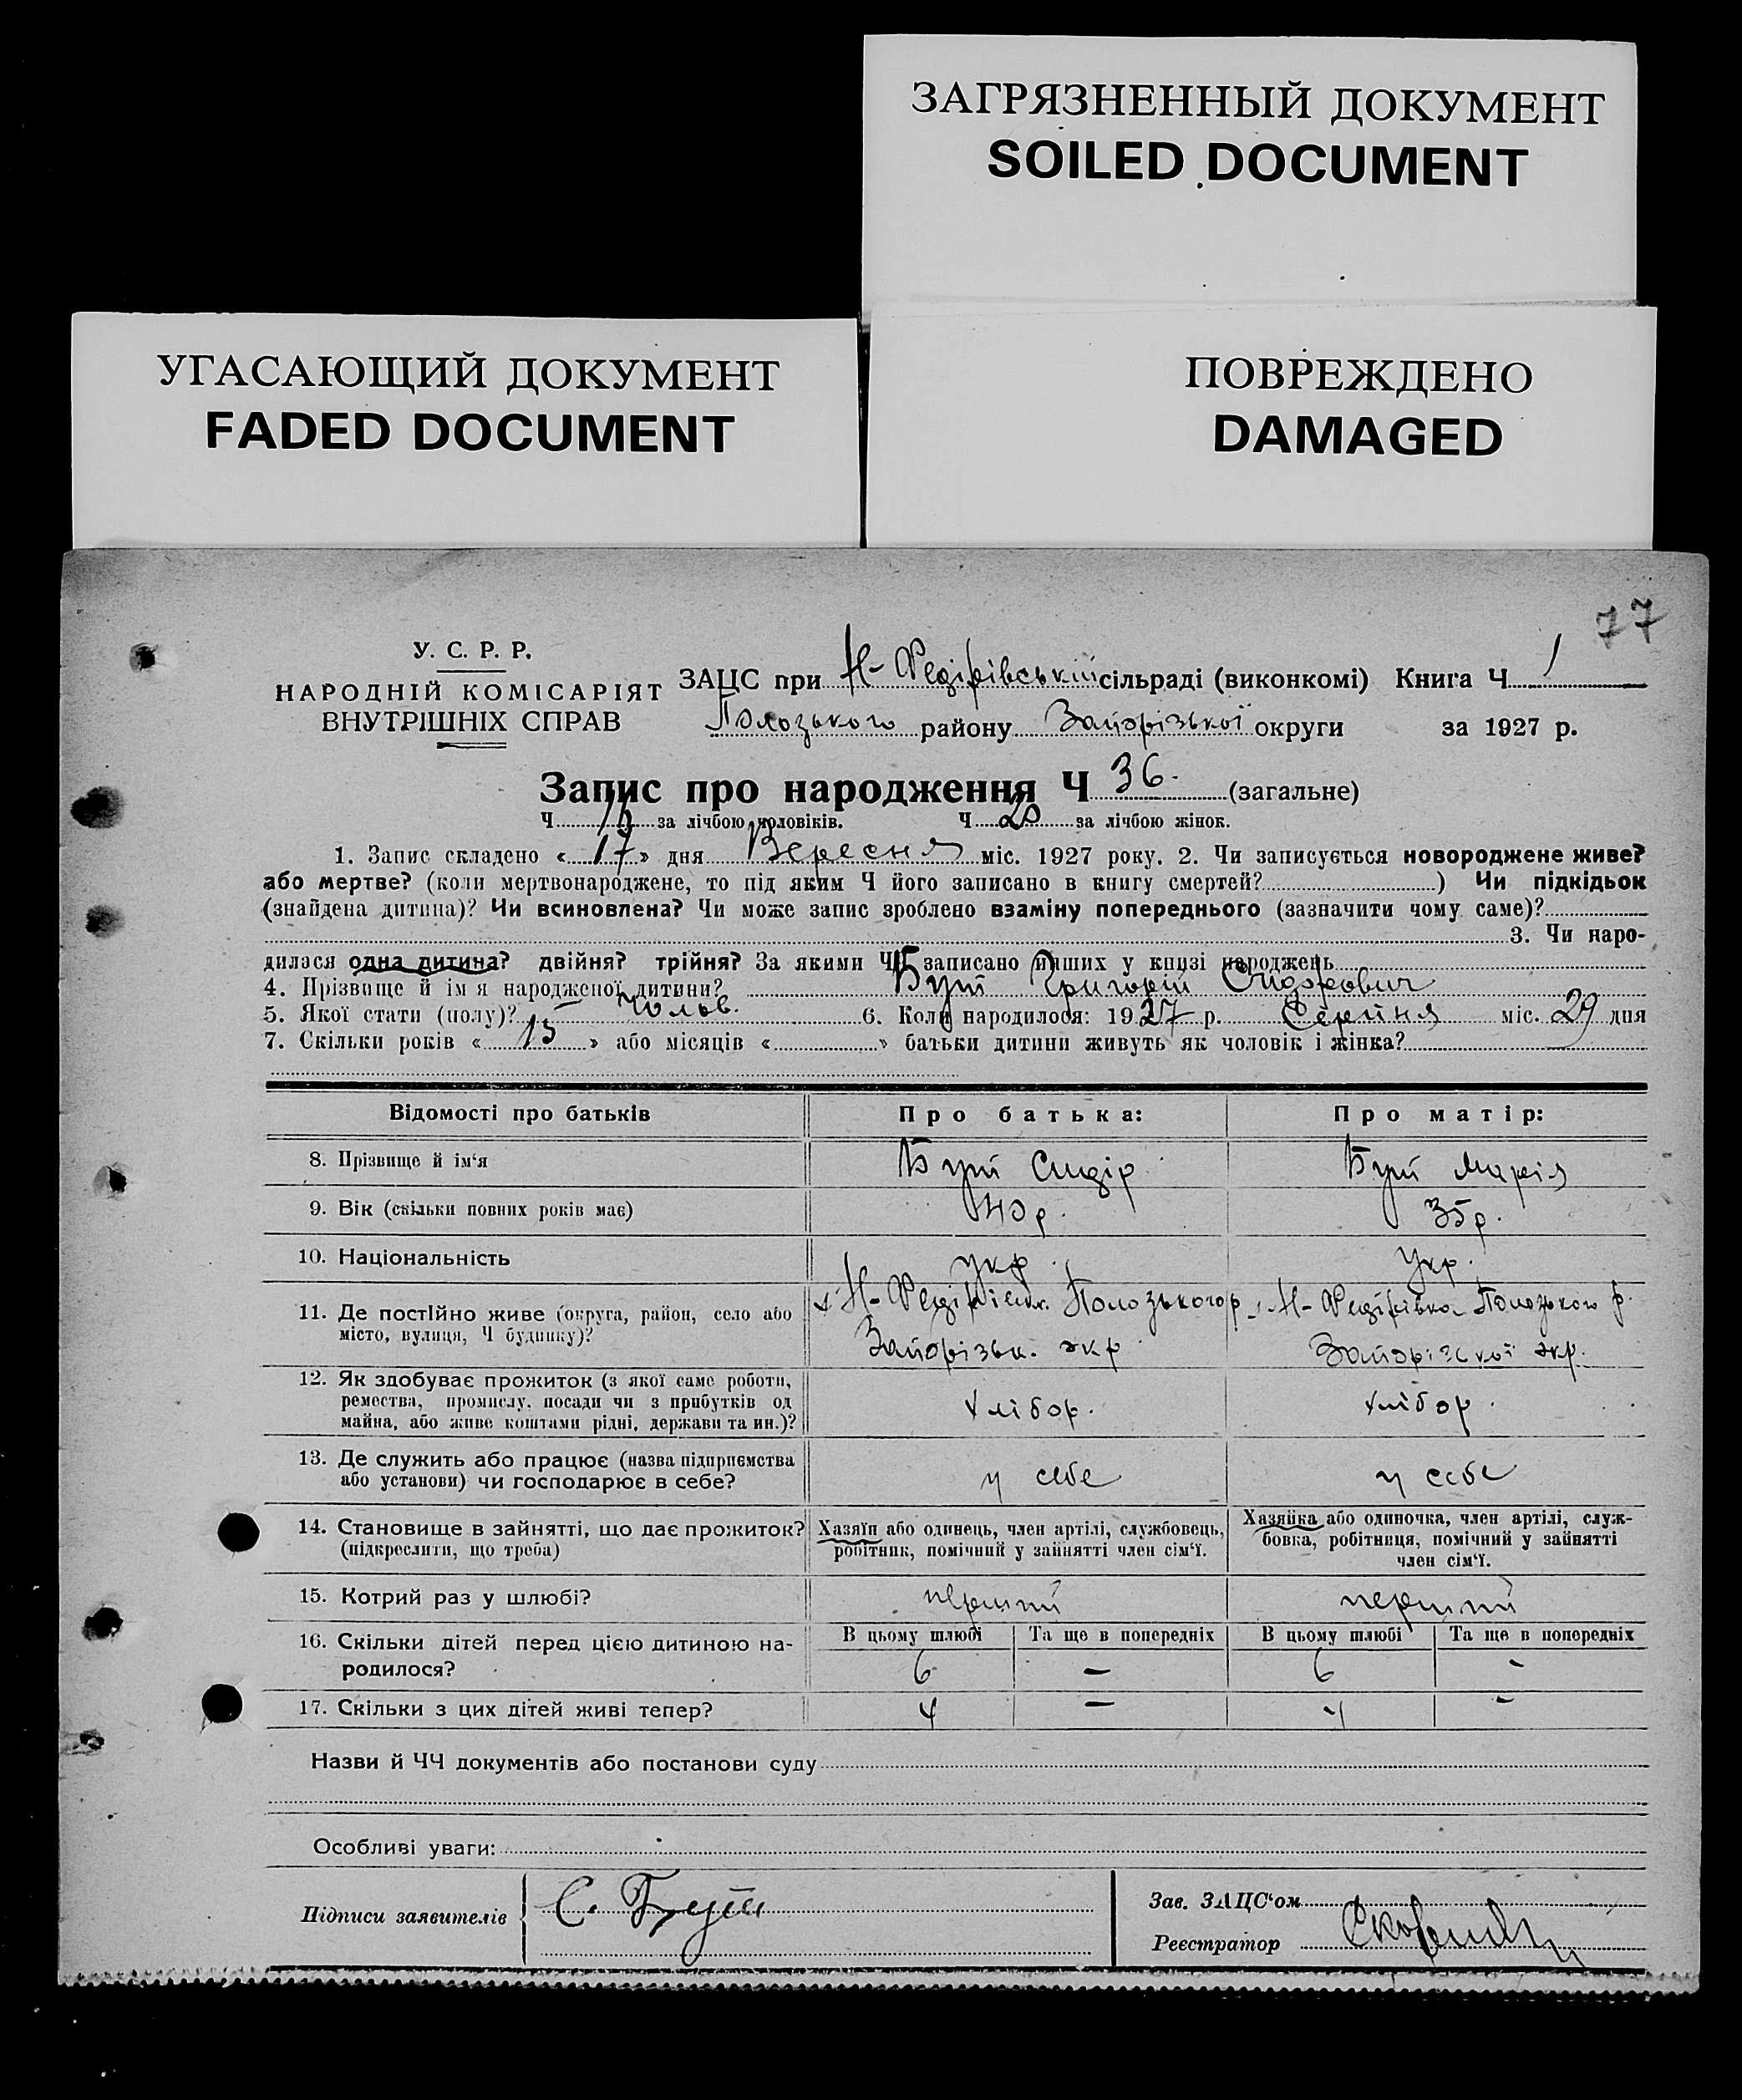 ЗАГРЯЗНЕННЫЙ ДОКУМЕНТ
SOILED DOCUMENT
УГАСАЮЩИЙ ДОКУМЕНТ
FADED DOCUMENT
ПОВРЕЖДЕНО
DAMAGED
77
У. С. Р. Р.
НАРОДНІЙ КОМІСАРІЯТ
ВНУТРІШНІХ СПРАВ
ЗАЦС при Н-Федірівській сільраді (виконкомі) Книга Ч 1
Полозького району Запорізької округи за 1927 р.
Запис про народження Ч 36. (загальне)
Ч 16 за лічбою чоловіків. Ч 20 за лічбою жінок.
1. Запис складено « 17 » дня Вересня міс. 1927 року. 2. Чи записується новороджене живе?
або мертве? (коли мертвонароджене, то під яким Ч його записано в книгу смертей? ) Чи підкідьок
(знайдена дитина)? Чи всиновлена? Чи може запис зроблено взаміну попереднього (зазначити чому саме)?
3. Чи наро-
дилася одна дитина? двійня? трійня? За якими ЧЧ записано инших у книзі народжень
4. Прізвище й ім я народженої дитини? Бут Григорій Сидорович
5. Якої стати (полу)? Чолов. 6. Коли народилося: 1927 р. Серпня міс. 29 дня
7. Скільки років « 15 » або місяців « » батьки дитини живуть як чоловік і жінка?
Відомості про батьків Про батька: Про матір:
8. Прізвище й ім‘я Бут Сидір Бут Марія
9. Вік (скільки повних років має) 40 р. 35 р.
10. Національність укр. Укр.
11. Де постійно живе (округа, район, село або х Н-Федірівка Полозького р Н-Федірівка Полозького р.
місто, вулиця, Ч будинку)? Запорізьк. окр Запорізької окр.
12. Як здобуває прожиток (з якої саме роботи,
ремества, промислу, посади чи з прибутків од хлібор. хлібор.
майна, або живе коштами рідні, держави та ин.)?
13. Де служить або працює (назва підприємства
або установи) чи господарює в себе? у себе у себе
14. Становище в зайнятті, що дає прожиток? Хазяїн або одинець, член артілі, службовець, Хазяйка або одиночка, член артілі, служ-
(підкреслити, що треба) робітник, помічний у зайнятті член сім‘ї. бовка, робітниця, помічний у зайнятті
член сім‘ї.
15. Котрий раз у шлюбі? перший перший
16. Скільки дітей перед цією дитиною на- В цьому шлюбі Та ще в попередніх В цьому шлюбі Та ще в попередніх
родилося? 6 — 6 -
17. Скільки з цих дітей живі тепер? 4 — 4 -
Назви й ЧЧ документів або постанови суду
Особливі уваги:
Підписи заявителів С. Бут
Зав. ЗАЦС‘ом
Реєстратор